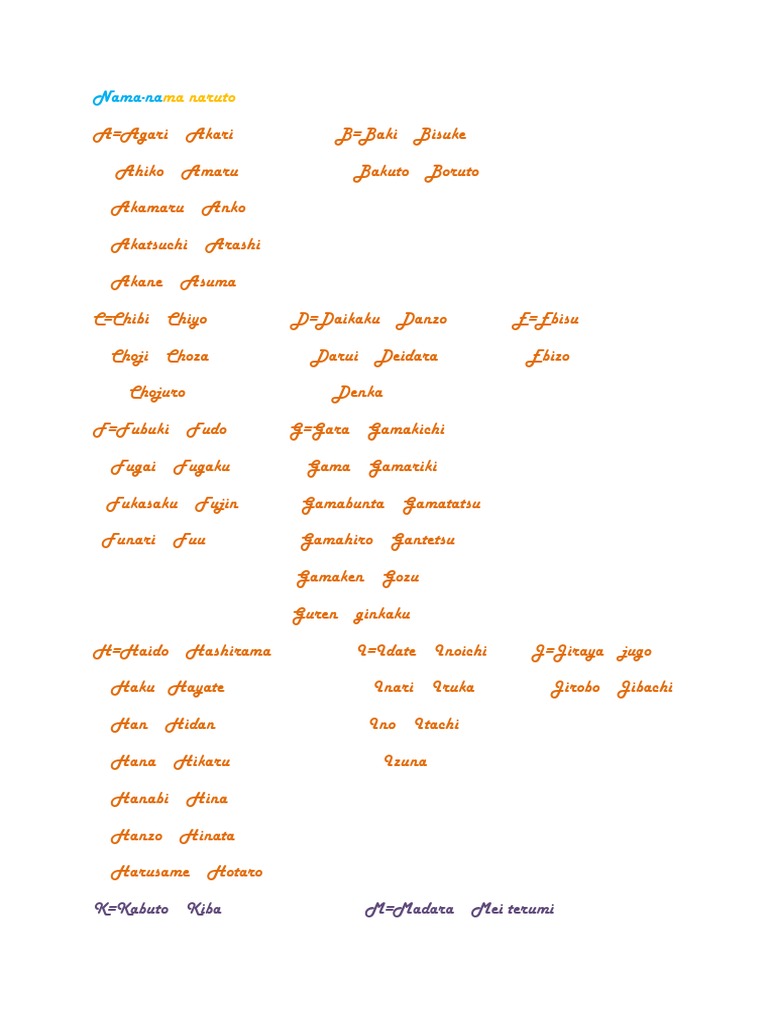 Nama-nama naruto
A=Agari Akari B=Baki Bisuke
Ahiko Amaru Bakuto Boruto
Akamaru Anko
Akatsuchi Arashi
Akane Asuma
C=Chibi Chiyo D=Daikaku Danzo E=Ebisu
Choji Choza Darui Deidara Ebizo
Chojuro Denka
F=Fubuki Fudo G=Gara Gamakichi
Fugai Fugaku Gama Gamariki
Fukasaku Fujin Gamabunta Gamatatsu
Funari Fuu Gamahiro Gantetsu
Gamaken Gozu
Guren ginkaku
H=Haido Hashirama I=Idate Inoichi J=Jiraya jugo
Haku Hayate Inari Iruka Jirobo Jibachi
Han Hidan Ino Itachi
Hana Hikaru Izuna
Hanabi Hina
Hanzo Hinata
Harusame Hotaro
K=Kabuto Kiba M=Madara Mei terumi